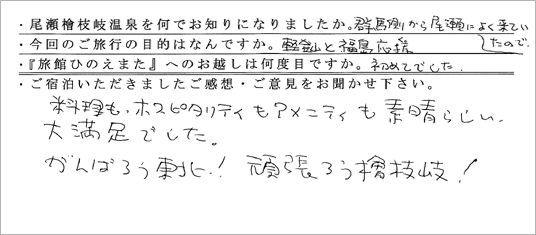 ・尾瀬檜枝岐温泉を何でお知りになりましたか。群馬側から尾瀬によく来ていたので
・今回のご旅行の目的はなんですか。登山と福島応援
・『旅館ひのえまた』へのお越しは何度目ですか。初めてでした
・ご宿泊いただきましたご感想・ご意見をお聞かせ下さい。
料理も、ホスピタリティもアメニティも素晴らしい、
大満足でした。
がんばろう東北!頑張ろう檜枝岐!